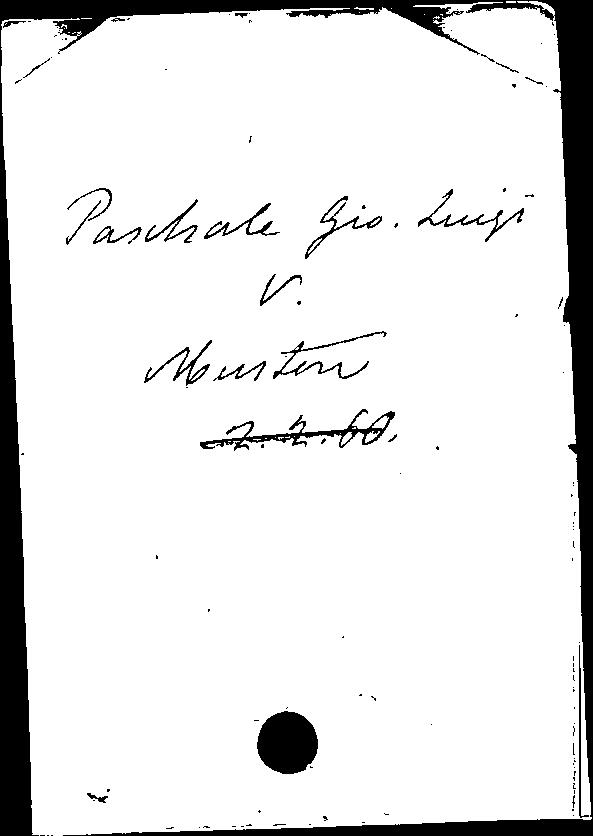 Paschale Gio. Luigi
V.
Muston
2.2.60.